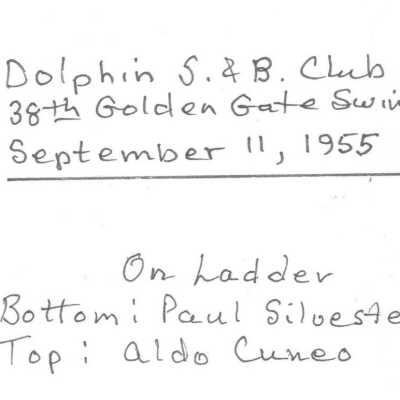 Dolphin S. & B. Club
38th Golden Gate Swi
September 11, 1955
On Ladder
Bottom: Paul Silveste
Top: Aldo Cuneo